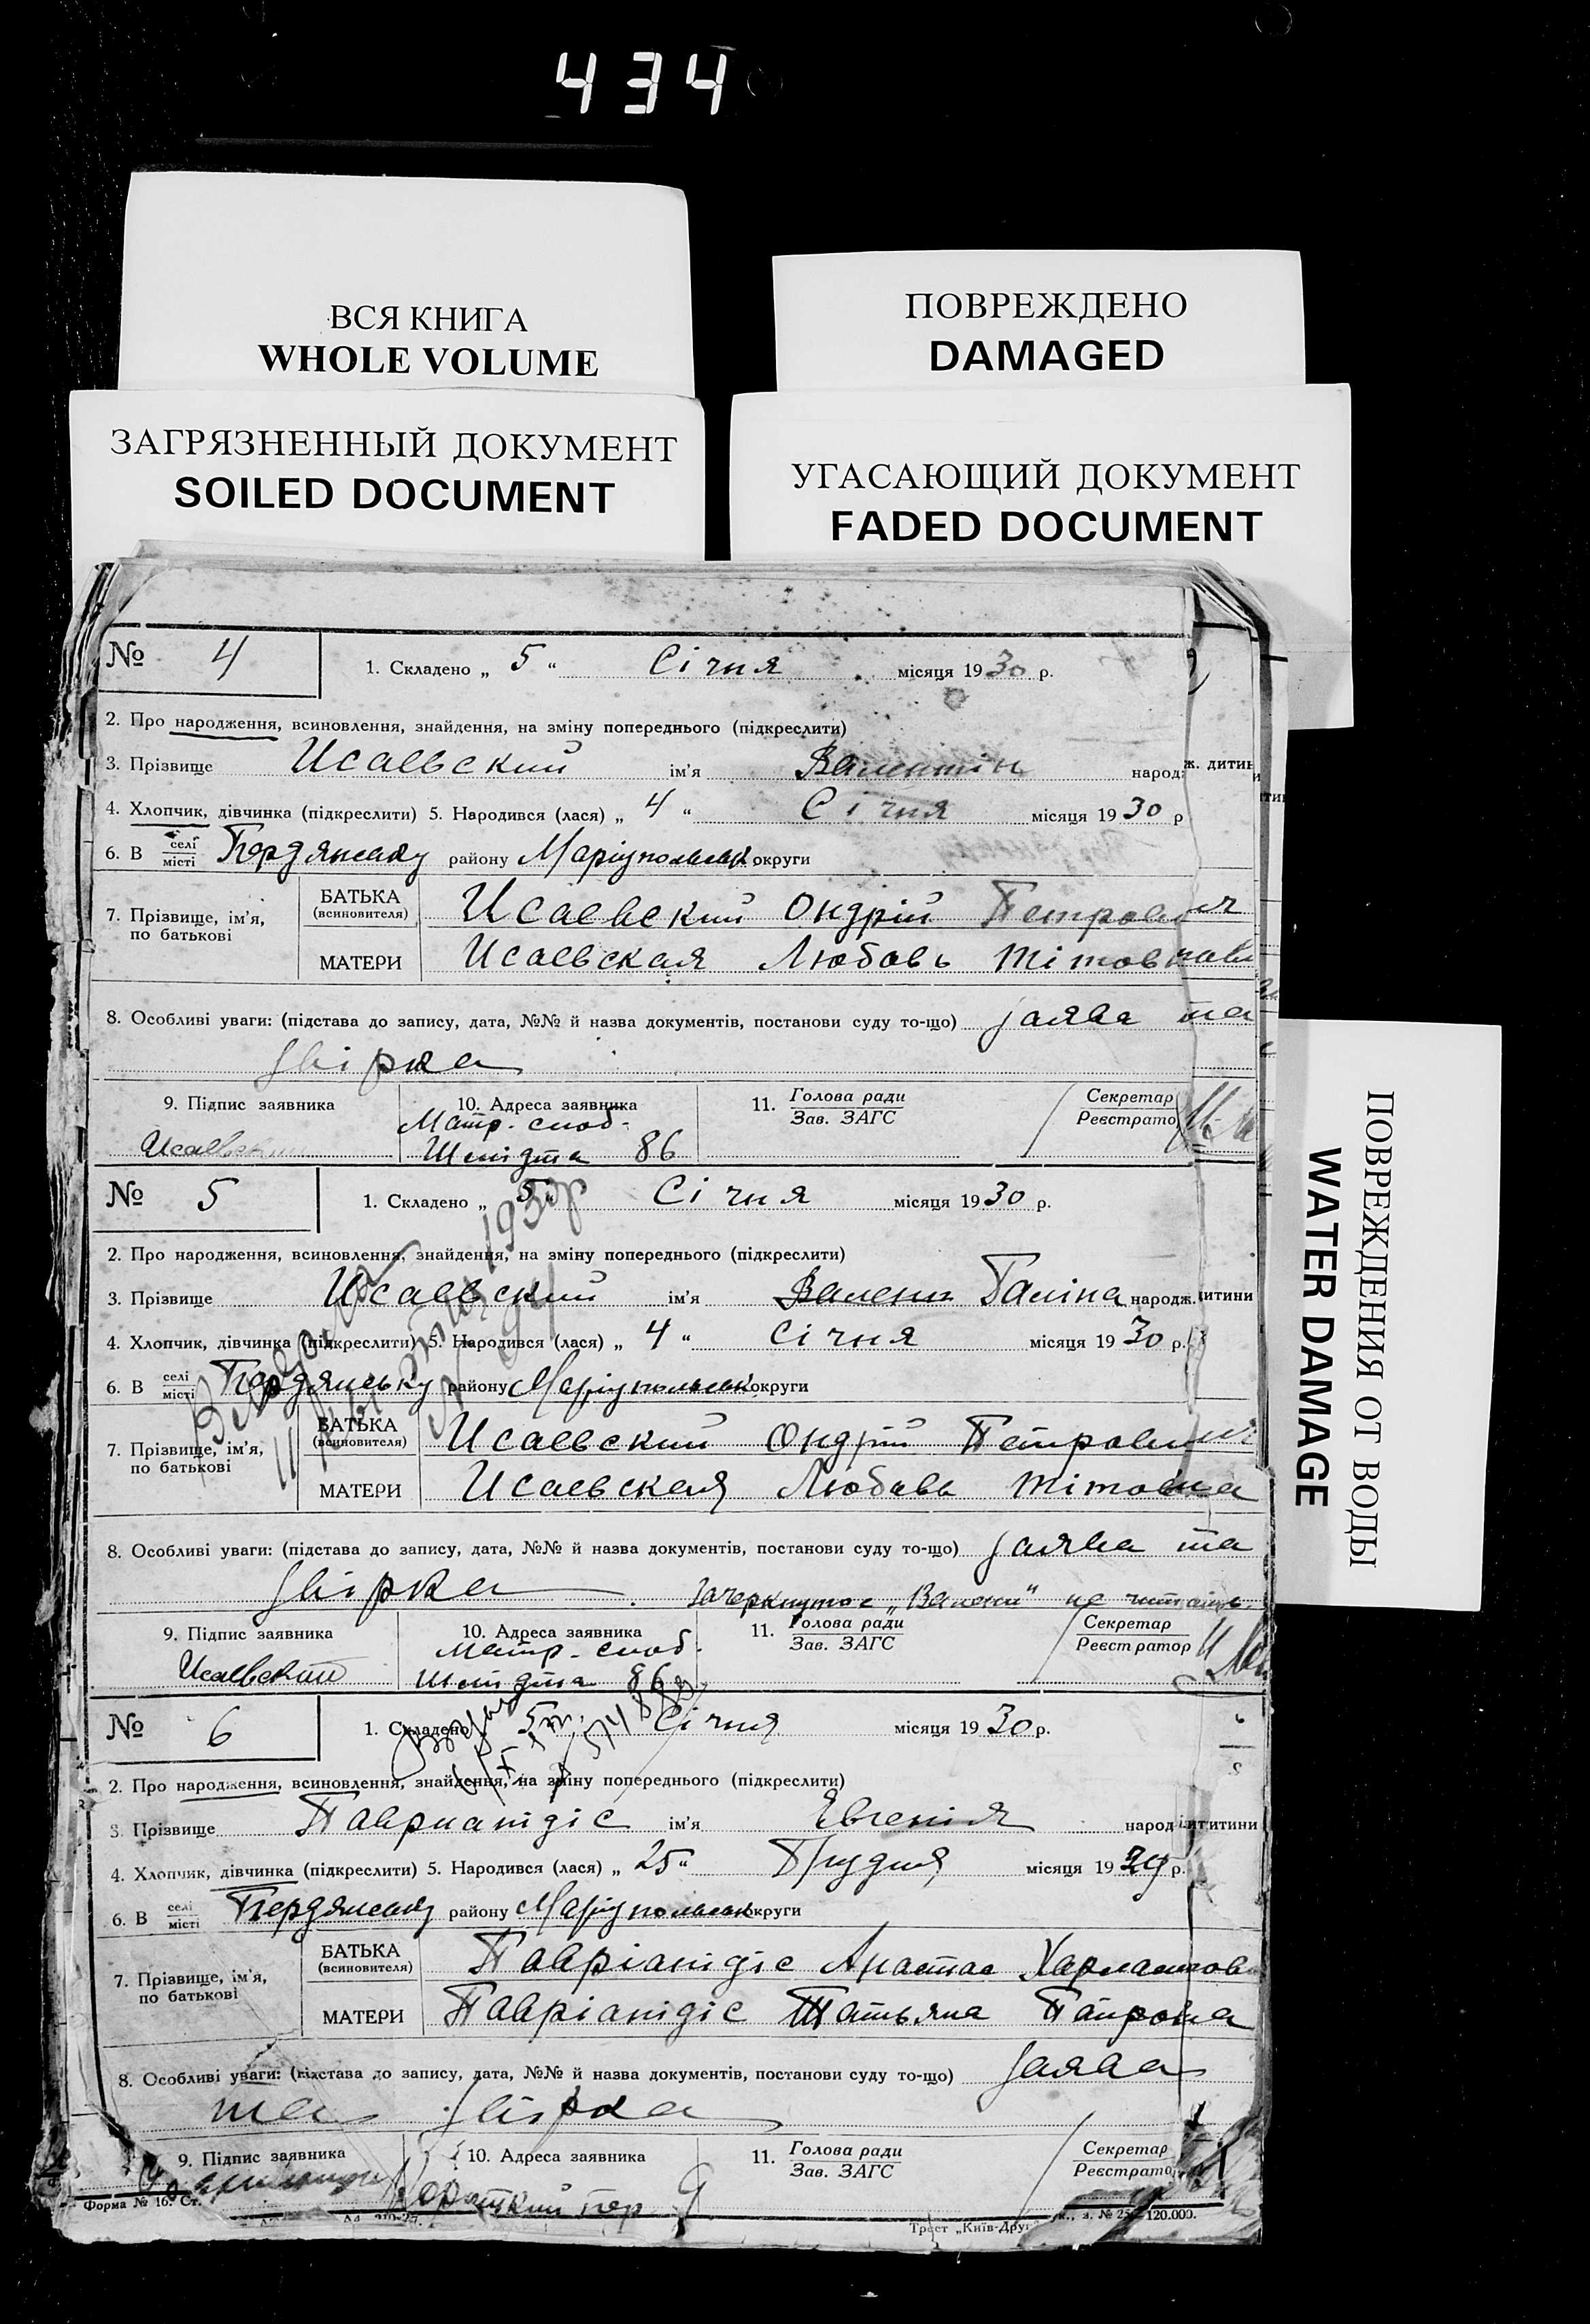 434
ВСЯ КНИГА
WHOLE VOLUME
ПОВРЕЖДЕНО
DAMAGED
ЗАГРЯЗНЕННЫЙ ДОКУМЕНТ
SOILED DOCUMENT
УГАСАЮЩИЙ ДОКУМЕНТ
FADED DOCUMENT
№ 4 1. Складено „ 5 “ Січня місяця 1930 р.
2. Про народження, всиновлення, знайдення, на зміну попереднього (підкреслити)
3. Прізвище Исаевский ім'я Валентін народ ж. дитин
4. Хлопчик, дівчинка (підкреслити) 5. Народився (лася) „ 4 “ Січня місяця 1930 р
6. В селі місті Бердянську району Маріупольськ округи
7. Прізвище, ім'я, по батькові
БАТЬКА (всиновителя) Исаевский Ондрій Петрович
МАТЕРИ Исаевская Любовь Тітовна
8. Особливі уваги: (підстава до запису, дата, №№ й назва документів, постанови суду то-що) заява та
звірка
9. Підпис заявника 10. Адреса заявника 11. Голова ради Зав. ЗАГС Секретар Реєстрато
Исаевский Матр. слоб.
Шмідта 86
№ 5 1. Складено „ 5 Січня місяця 1930 р.
2. Про народження, всиновлення, знайдення, на зміну попереднього (підкреслити)
3. Прізвище Исаевский ім'я Вален Галіна народж. итини
4. Хлопчик, дівчинка (підкреслити) 5. Народився (лася) „ 4 “ Січня місяця 1930 р.
6. В селі місті Бердянську району Маріупольськ округи
7. Прізвище, ім'я, по батькові
БАТЬКА (всиновителя) Исаевский Ондрій Петрович
МАТЕРИ Исаевская Любовь Тітовна
8. Особливі уваги: (підстава до запису, дата, №№ й назва документів, постанови суду то-що) заява та
звірка Зачеркнутое „Вален“ не
9. Підпис заявника 10. Адреса заявника 11. Голова ради Зав. ЗАГС Секретар Реєстратор
Исаевский Матр. слоб.
Шмідта 86
№ 6 1. Складено 5 Січня місяця 1930 р.
2. Про народження, всиновлення, знайдення, на зміну попереднього (підкреслити)
3. Прізвище ім'я Евгенія народ итини
4. Хлопчик, дівчинка (підкреслити) 5. Народився (лася) „ 25 “ Грудня місяця 1929 р.
6. В селі місті Бердянську району Маріупольськ округи
7. Прізвище, ім'я, по батькові
БАТЬКА (всиновителя) Анастас
МАТЕРИ Татьяна
8. Особливі уваги: (підстава до запису, дата, №№ й назва документів, постанови суду то-що) заява
та звірка
9. Підпис заявника 10. Адреса заявника 11. Голова ради Зав. ЗАГС Секретар Реєстрато
Короткий пер 9
Форма № 16. Ст.
Трест „Київ-Друк 120.000.
ПОВРЕЖДЕНИЯ ОТ ВОДЫ
WATER DAMAGE